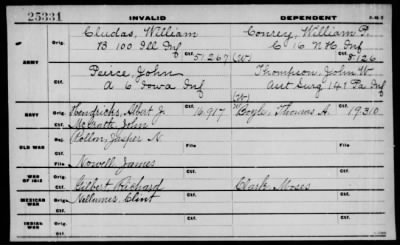 25331 INVALID DEPENDENT
Orig. Cludas, William Orig. Conrey, William P.
B 100 Ill Inf C 16 N H Inf
ARMY 51267 (W) 8126
Ctf. Peirce, John Ctf. Thompson, John W.
A 6 Iowa Inf Asst Surg 149 Pa Inf
(W)
NAVY Orig. Hendricks, Albert J. 16,917 Boyle, Thomas A. 19310
Ctf. McGrath, John Ctf.
OLD WAR Jasper N. File
Ctf. Nowell James Ctf.
WAR OF 1812 Orig. Gilbert Richard Clark Moses
Ctf. Ctf.
MEXICAN WAR Orig. Clint Orig.
Ctf. Ctf.
INDIAN WAR Orig. Orig.
Ctf. Ctf.